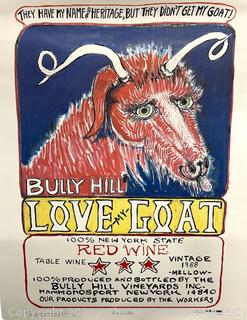 THEY HAVE MY NAME & HERITAGE, BUT THEY DIDN'T GET MY GOAT!
"BULLY HILL"
LOVE MY GOAT
100% NEW YORK STATE
RED WINE
TABLE WINE
VINTAGE
1988
-MELLOW-
100% PRODUCED AND BOTTLED BY THE
BULLY HILL VINEYARDS INC.
HAMMONDSPORT NEW YORK 14840
OUR PRODUCTS PRODUCED BY THE WORKERS